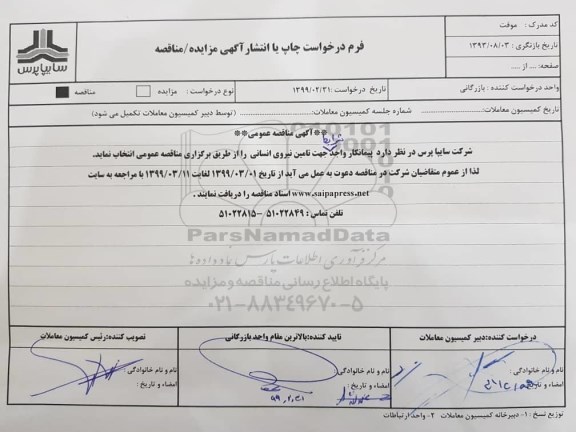 کد مدرک : موقت
تاریخ بازنگری : ۱۳۹۳/۰۸/۰۳
صفحه: .... از .....
فرم درخواست چاپ یا انتشارآگهی مزایده/مناقصه
سایپاپرس
واحد درخواست کننده : بازرگانی
تاریخ درخواست :۱۳۹۹/۰۲/۳۱
نوع درخواست : مزایده مناقصه
تاریخ کمیسیون معاملات: شماره جلسه کمیسیون معاملات: (توسط دبیر کمیسیون معاملات تکمیل می شود)
**آگهی مناقصه عمومی**
شرکت سایپا پرس در نظر دارد پیمانکار واجد جهت تامین نیروی انسانی را از طریق برگزاری مناقصه عمومی انتخاب نماید.
لذا از عموم متقاضیان شرکت در مناقصه دعوت به عمل می آید از تاریخ ۱۳۹۹/۰۳/۰۱ لغایت ۱۳۹۹/۰۳/۱۱ با مراجعه به سایت
www.saipapress.net اسناد مناقصه را دریافت نمایند .
تلفن تماس : ۵۱۰۲۲۸۴۹ -۵۱۰۲۲۸۱۵
ParsNamadData
مرکز فرآوری اطلاعات پارس نماد داده ها
پایگاه اطلاع رسانی مناقصه و مزایده
۰۲۱-۸۸۳۴۹۶۷۰-۵
درخواست کننده:دبیر کمیسیون معاملات
تایید کننده:بالاترین مقام واحد بازرگانی
تصویب کننده:رئیس کمیسیون معاملات
نام و نام خانوادگی :
نام و نام خانوادگی :
نام و نام خانوادگی :
امضاء و تاریخ :
امضاء و تاریخ :
امضاء و تاریخ :
۹۹,۲,۳۱
توزیع نسخ : ۱- دبیرخانه کمیسیون معاملات ۲- واحد ارتباطات